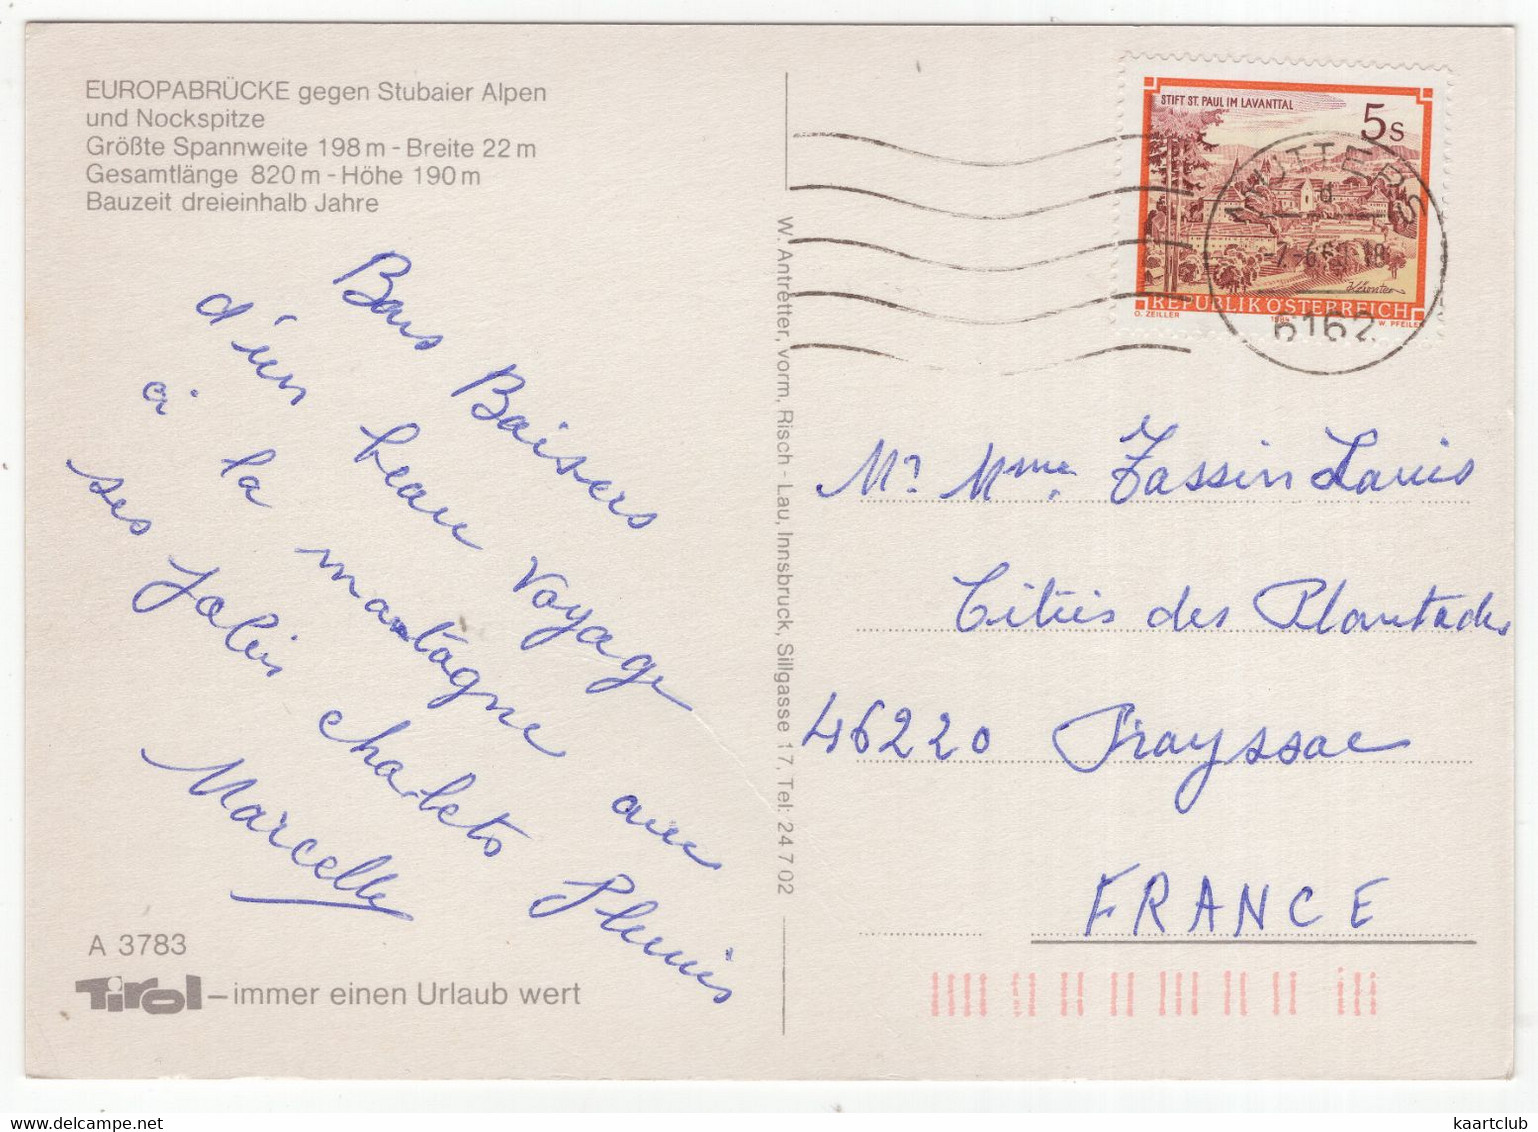 EUROPABRÜCKE gegen Stubaier Alpen
und Nockspitze
Größte Spannweite 198 m - Breite 22 m
Gesamtlänge 820 m - Höhe 190 m
Bauzeit dreieinhalb Jahre
Bons Baisers
d'un beau voyage
à la montagne aux
ses Jolis chalets fleuris
Marcelle
A 3783
Tirol – immer einen Urlaub wert
W. Antretter, vorm. Risch - Lau, Innsbruck, Sillgasse 17, Tel: 24 7 02
STIFT ST. PAUL IM LAVANTTAL
5 S
REPUBLIK ÖSTERREICH
O. ZEILLER 1984 W. PFEILER
MUTTERS
d
6162
Mr Mme. Tassin Louis
Cités des Plantades
46220 Prayssac
FRANCE
kaartclub